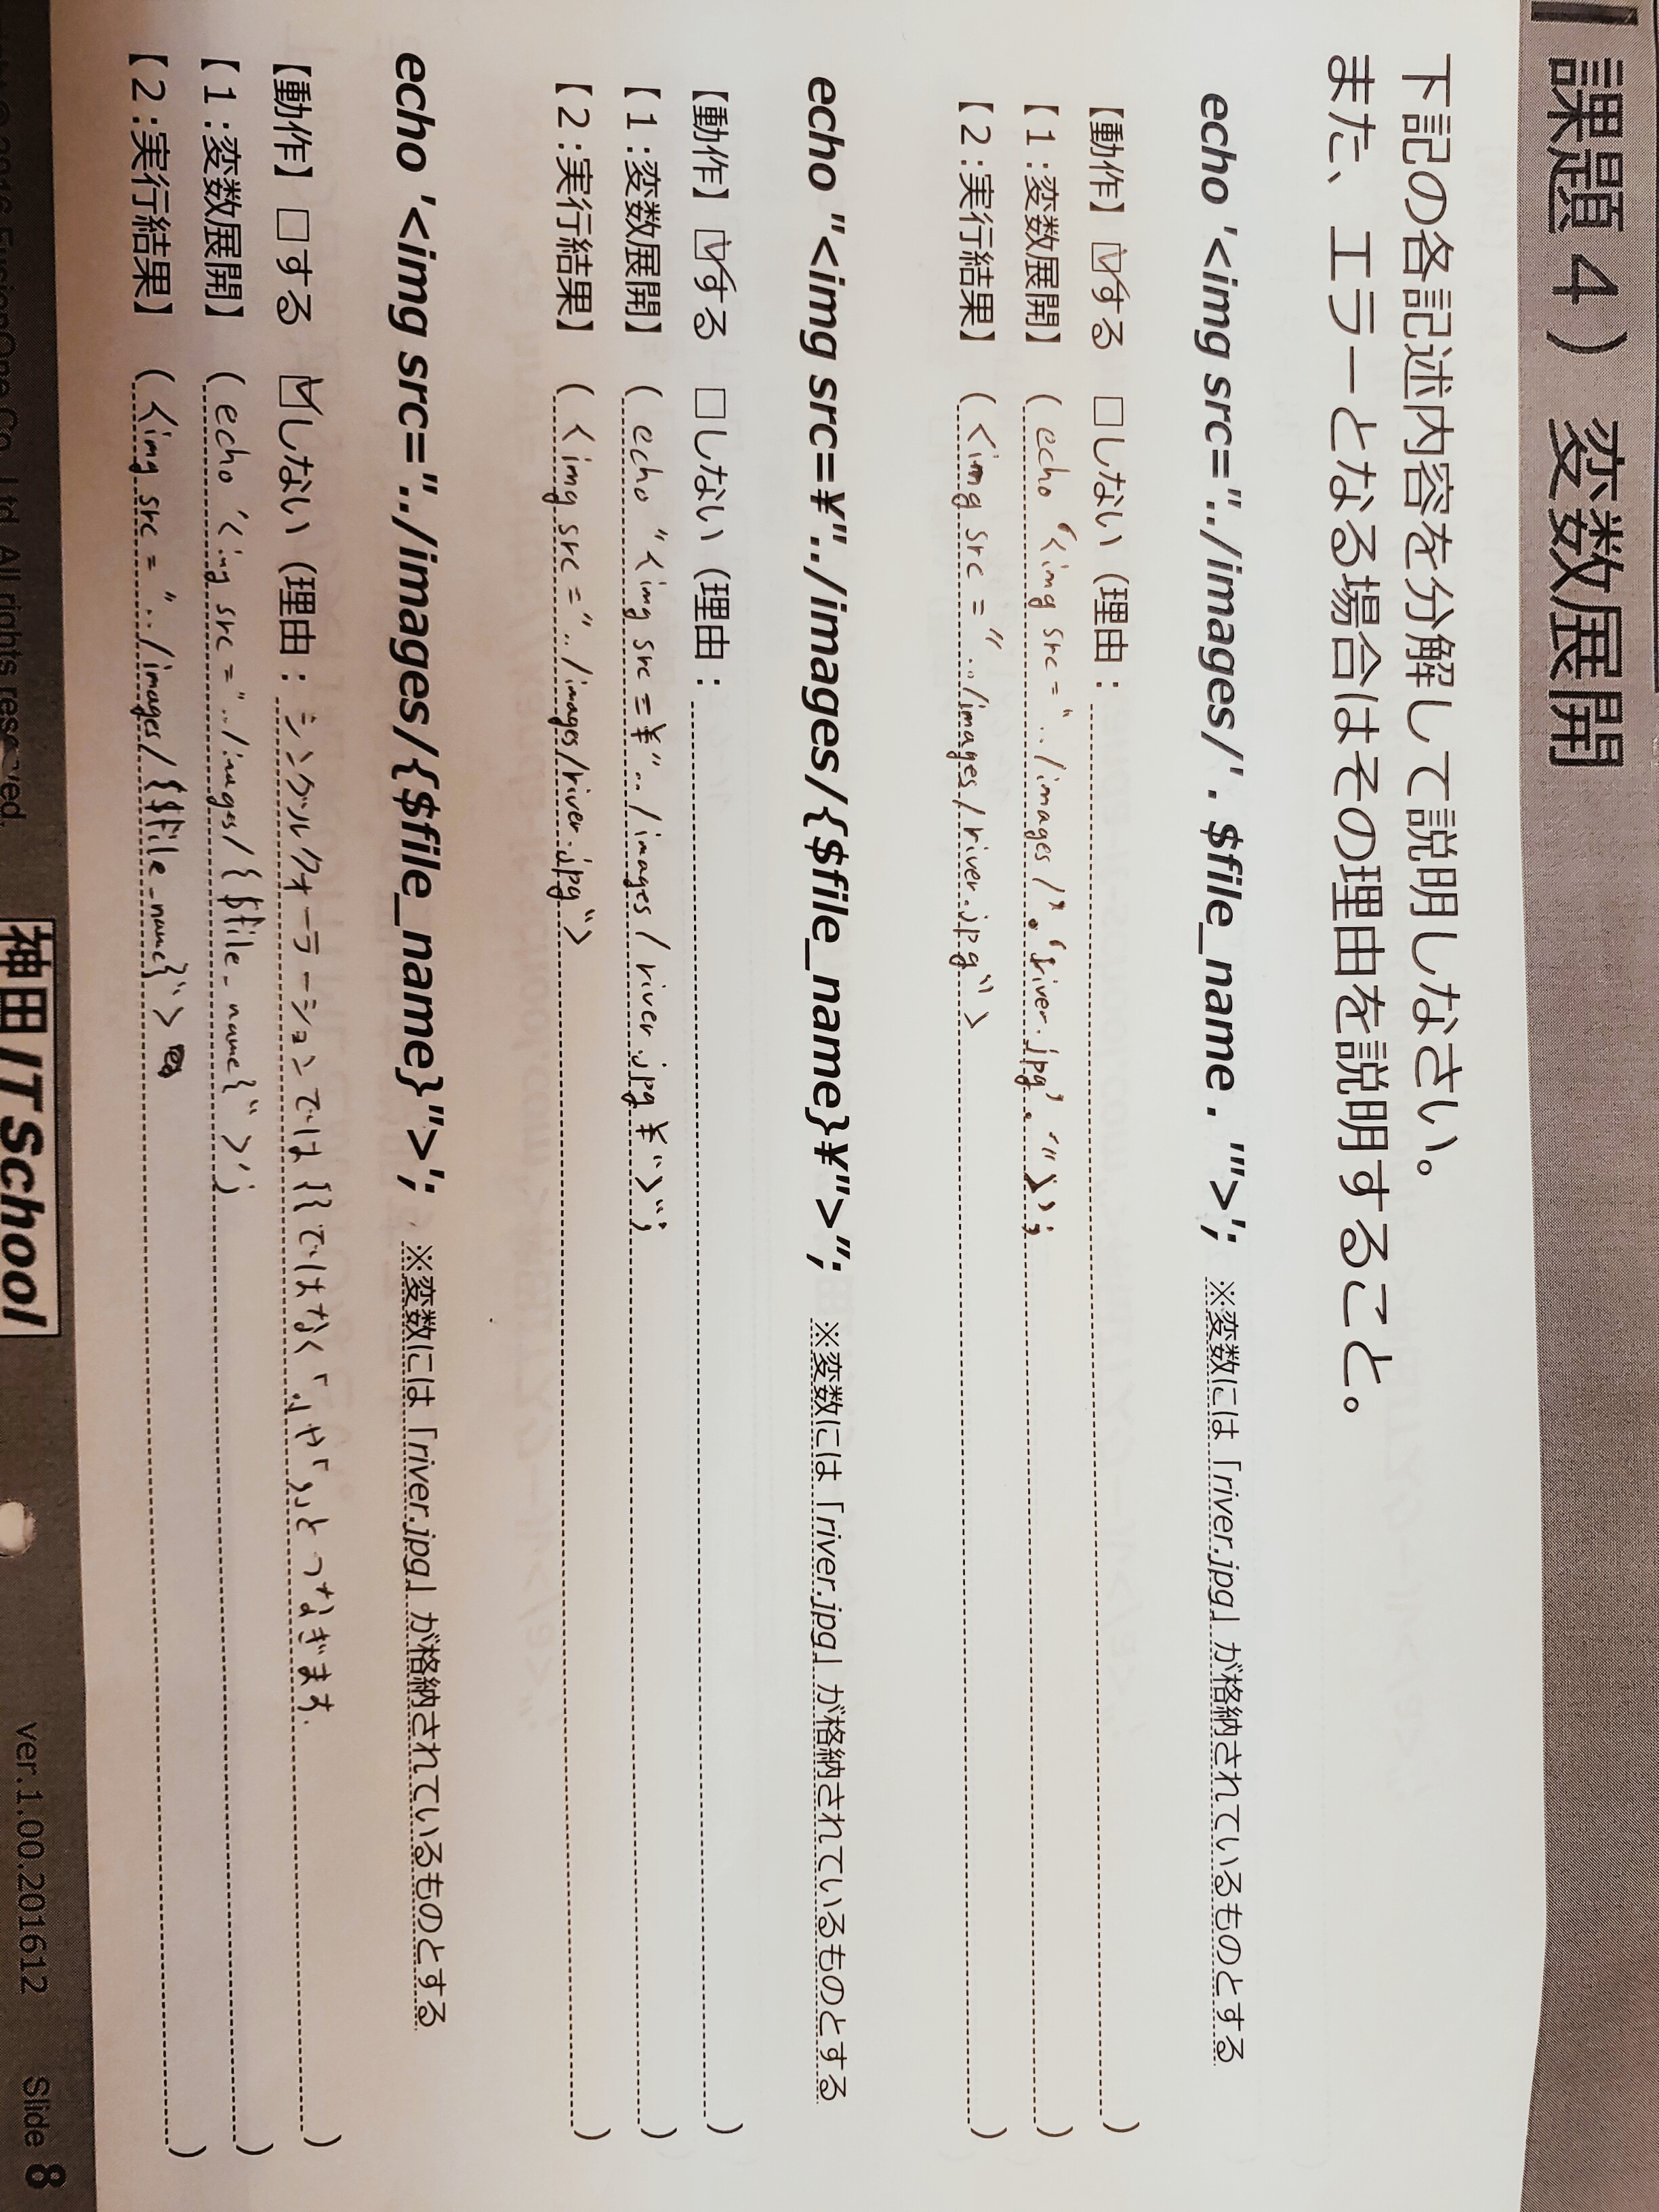 課題４）変数展開
下記の各記述内容を分解して説明しなさい。
また、エラーとなる場合はその理由を説明すること。
echo '<img src="../images/' . $file_name . '">'; ※変数には「river.jpg」が格納されているものとする
【動作】☑する □しない（理由：）
【１:変数展開】 (echo '<img src="../images/'.'river.jpg'.'">';)
【２:実行結果】 (<img src="../images/river.jpg">)
echo "<img src=¥"../images/{$file_name}¥">"; ※変数には「river.jpg」が格納されているものとする
【動作】☑する □しない（理由：）
【１:変数展開】 (echo "<img src=¥"../images/river.jpg¥">";)
【２:実行結果】 (<img src="../images/river.jpg">)
echo '<img src="../images/{$file_name}">'; ※変数には「river.jpg」が格納されているものとする
【動作】□する ☑しない（理由：シングルクォーラーションでは{{ではなく「.」や「,」とつなぎます.）
【１:変数展開】 (echo '<img src="../images/{$file_name}">';)
【２:実行結果】 (<img src="../images/{$file_name}">)
© 2016 FusionOne Co., Ltd. All rights reserved. 神田 IT School ver.1.00.201612 Slide 8